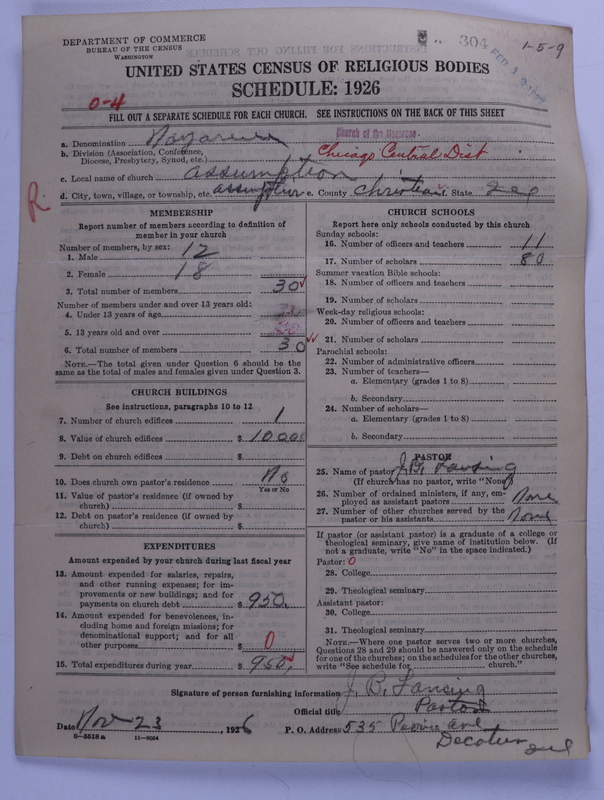 DEPARTMENT OF COMMERCE
BUREAU OF THE CENSUS
WASHINGTON
304
1-5-9
UNITED STATES CENSUS OF RELIGIOUS BODIES
SCHEDULE: 1926
0-4
FILL OUT A SEPARATE SCHEDULE FOR EACH CHURCH. SEE INSTRUCTIONS ON THE BACK OF THIS SHEET
Church of the Nazarene
a. Denomination Nazarene
b. Division (Association, Conference, Diocese, Presbytery, Synod, etc.) Chicago Central Dist
c. Local name of church assumption
d. City, town, village, or township, etc. assumption e. County Christian f. State Ill
R.
MEMBERSHIP
Report number of members according to definition of
member in your church
Number of members, by sex:
1. Male 12
2. Female 18
3. Total number of members 30
Number of members under and over 13 years old:
4. Under 13 years of age
5. 13 years old and over 30
6. Total number of members 30
NOTE.—The total given under Question 6 should be the
same as the total of males and females given under Question 3.
CHURCH BUILDINGS
See instructions, paragraphs 10 to 12
7. Number of church edifices 1
8. Value of church edifices $ 1000
9. Debt on church edifices $
10. Does church own pastor's residence No
Yes or No
11. Value of pastor's residence (if owned by
church) $
12. Debt on pastor's residence (if owned by
church) $
EXPENDITURES
Amount expended by your church during last fiscal year
13. Amount expended for salaries, repairs,
and other running expenses; for im-
provements or new buildings; and for
payments on church debt $ 950.
14. Amount expended for benevolences, in-
cluding home and foreign missions; for
denominational support; and for all
other purposes $ 0
15. Total expenditures during year $ 950.
CHURCH SCHOOLS
Report here only schools conducted by this church
Sunday schools:
16. Number of officers and teachers 11
17. Number of scholars 80
Summer vacation Bible schools:
18. Number of officers and teachers
19. Number of scholars
Week-day religious schools:
20. Number of officers and teachers
21. Number of scholars
Parochial schools:
22. Number of administrative officers
23. Number of teachers—
a. Elementary (grades 1 to 8)
b. Secondary
24. Number of scholars—
a. Elementary (grades 1 to 8)
b. Secondary
PASTOR
25. Name of pastor J. B. Lansing
(If church has no pastor, write "None")
26. Number of ordained ministers, if any, em-
ployed as assistant pastors None
27. Number of other churches served by the
pastor or his assistants None
If pastor (or assistant pastor) is a graduate of a college or
theological seminary, give name of institution below. (If
not a graduate, write "No" in the space indicated.)
Pastor: 0
28. College
29. Theological seminary
Assistant pastor:
30. College
31. Theological seminary
NOTE.—Where one pastor serves two or more churches,
Questions 28 and 29 should be answered only on the schedule
for one of the churches; on the schedules for the other churches,
write "See schedule for church."
Signature of person furnishing information J. B. Lansing
Official title Pastor
Date Nov 23, 1926 P. O. Address 535 Peoria ave
Decatur Ill
8-5518 a 11-9064